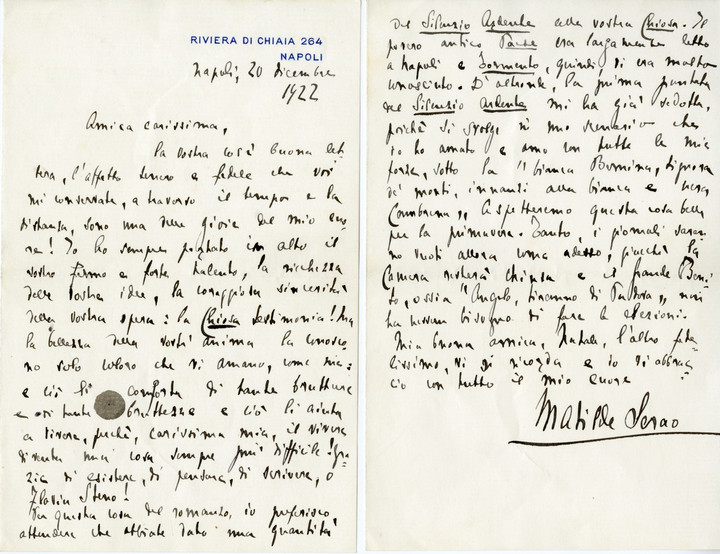 RIVIERA DI CHIAIA 264
NAPOLI
Napoli, 20 dicembre
1922
Amica carissima,
la vostra così buona let
tera, l'affetto tenero e fedele che voi
mi conservate, a traverso il tempo e la
distanza, sono una delle gioie del mio cuo
re! Io ho sempre portato in alto il
vostro fermo e forte talento, la ricchezza
delle vostre idee, la coraggiosa sincerità
della vostra opera: la Chiosa testimonia! Ma
la bellezza della vostr'anima la conosco
no solo coloro che vi amano, come me:
e ciò li conforta di tante brutture
e di tante bruttezze e ciò li aiuta
a vivere, perchè, carissima mia, il vivere
diventa una cosa sempre più difficile! Gra
zie di esistere, di pensare, di scrivere, o
Flavia Steno!
In questa cosa del romanzo, io preferisco
attendere che abbiate dato una quantità
del Silenzio Ardente alla vostra Chiosa. Il
povero antico Paese era largamente letto
a Napoli e quindi, vi era molto
conosciuto. D'altronde, la prima puntata
del Silenzio Ardente mi ha già sedotta,
perchè si svolge in uno scenario che
io ho amato e amo con tutte le mie
forze, sotto la "bianca Bernina, signora
de' monti, innanzi alla bianca e
Aspetteremo questa cosa bella
per la primavera. Tanto, i giornali saran
no vuoti allora come adesso, giacchè la
Camera resterà chiusa e il grande Beni
to, ossia "Angelo, tiranno di Padova", non
ha nessun bisogno di fare le elezioni.
Mia buona amica, Natale, l'altro fede
lissimo, vi si ricorda e io vi abbrac
cio con tutto il mio cuore
Matilde Serao